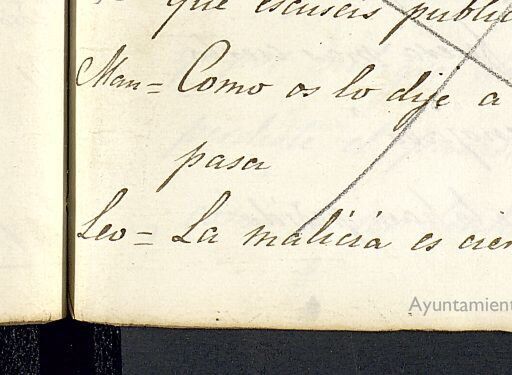 que escuseis public
Man = Como os lo dije a
pasar
Leo = La malicia es cier
Ayuntamient